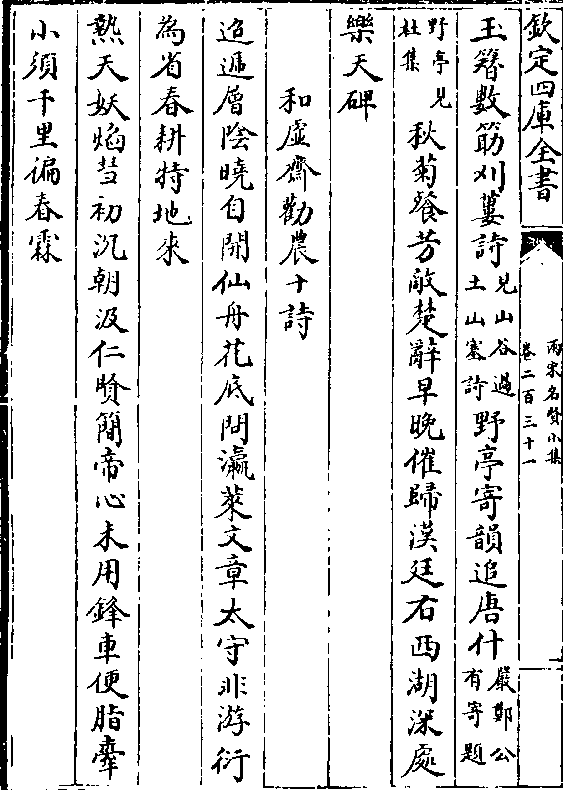 欽定四庫全書
兩宋名賢小集
卷二百三十一
玉簪數筯刈蔞詩見山谷過土山寨詩野亭寄韻追唐什嚴鄭公有寄題
野亭見杜集秋菊餐芳敵楚辭早晚催歸漢廷右西湖深處
樂天碑
和虛齋勸農十詩
迢遞層陰曉自開仙舟花底問瀛萊文章太守非游衍
為省春耕特地來
熱天妖焰彗初沉朝汲仁賢簡帝心未用鋒車便脂舝
小須千里徧春霖